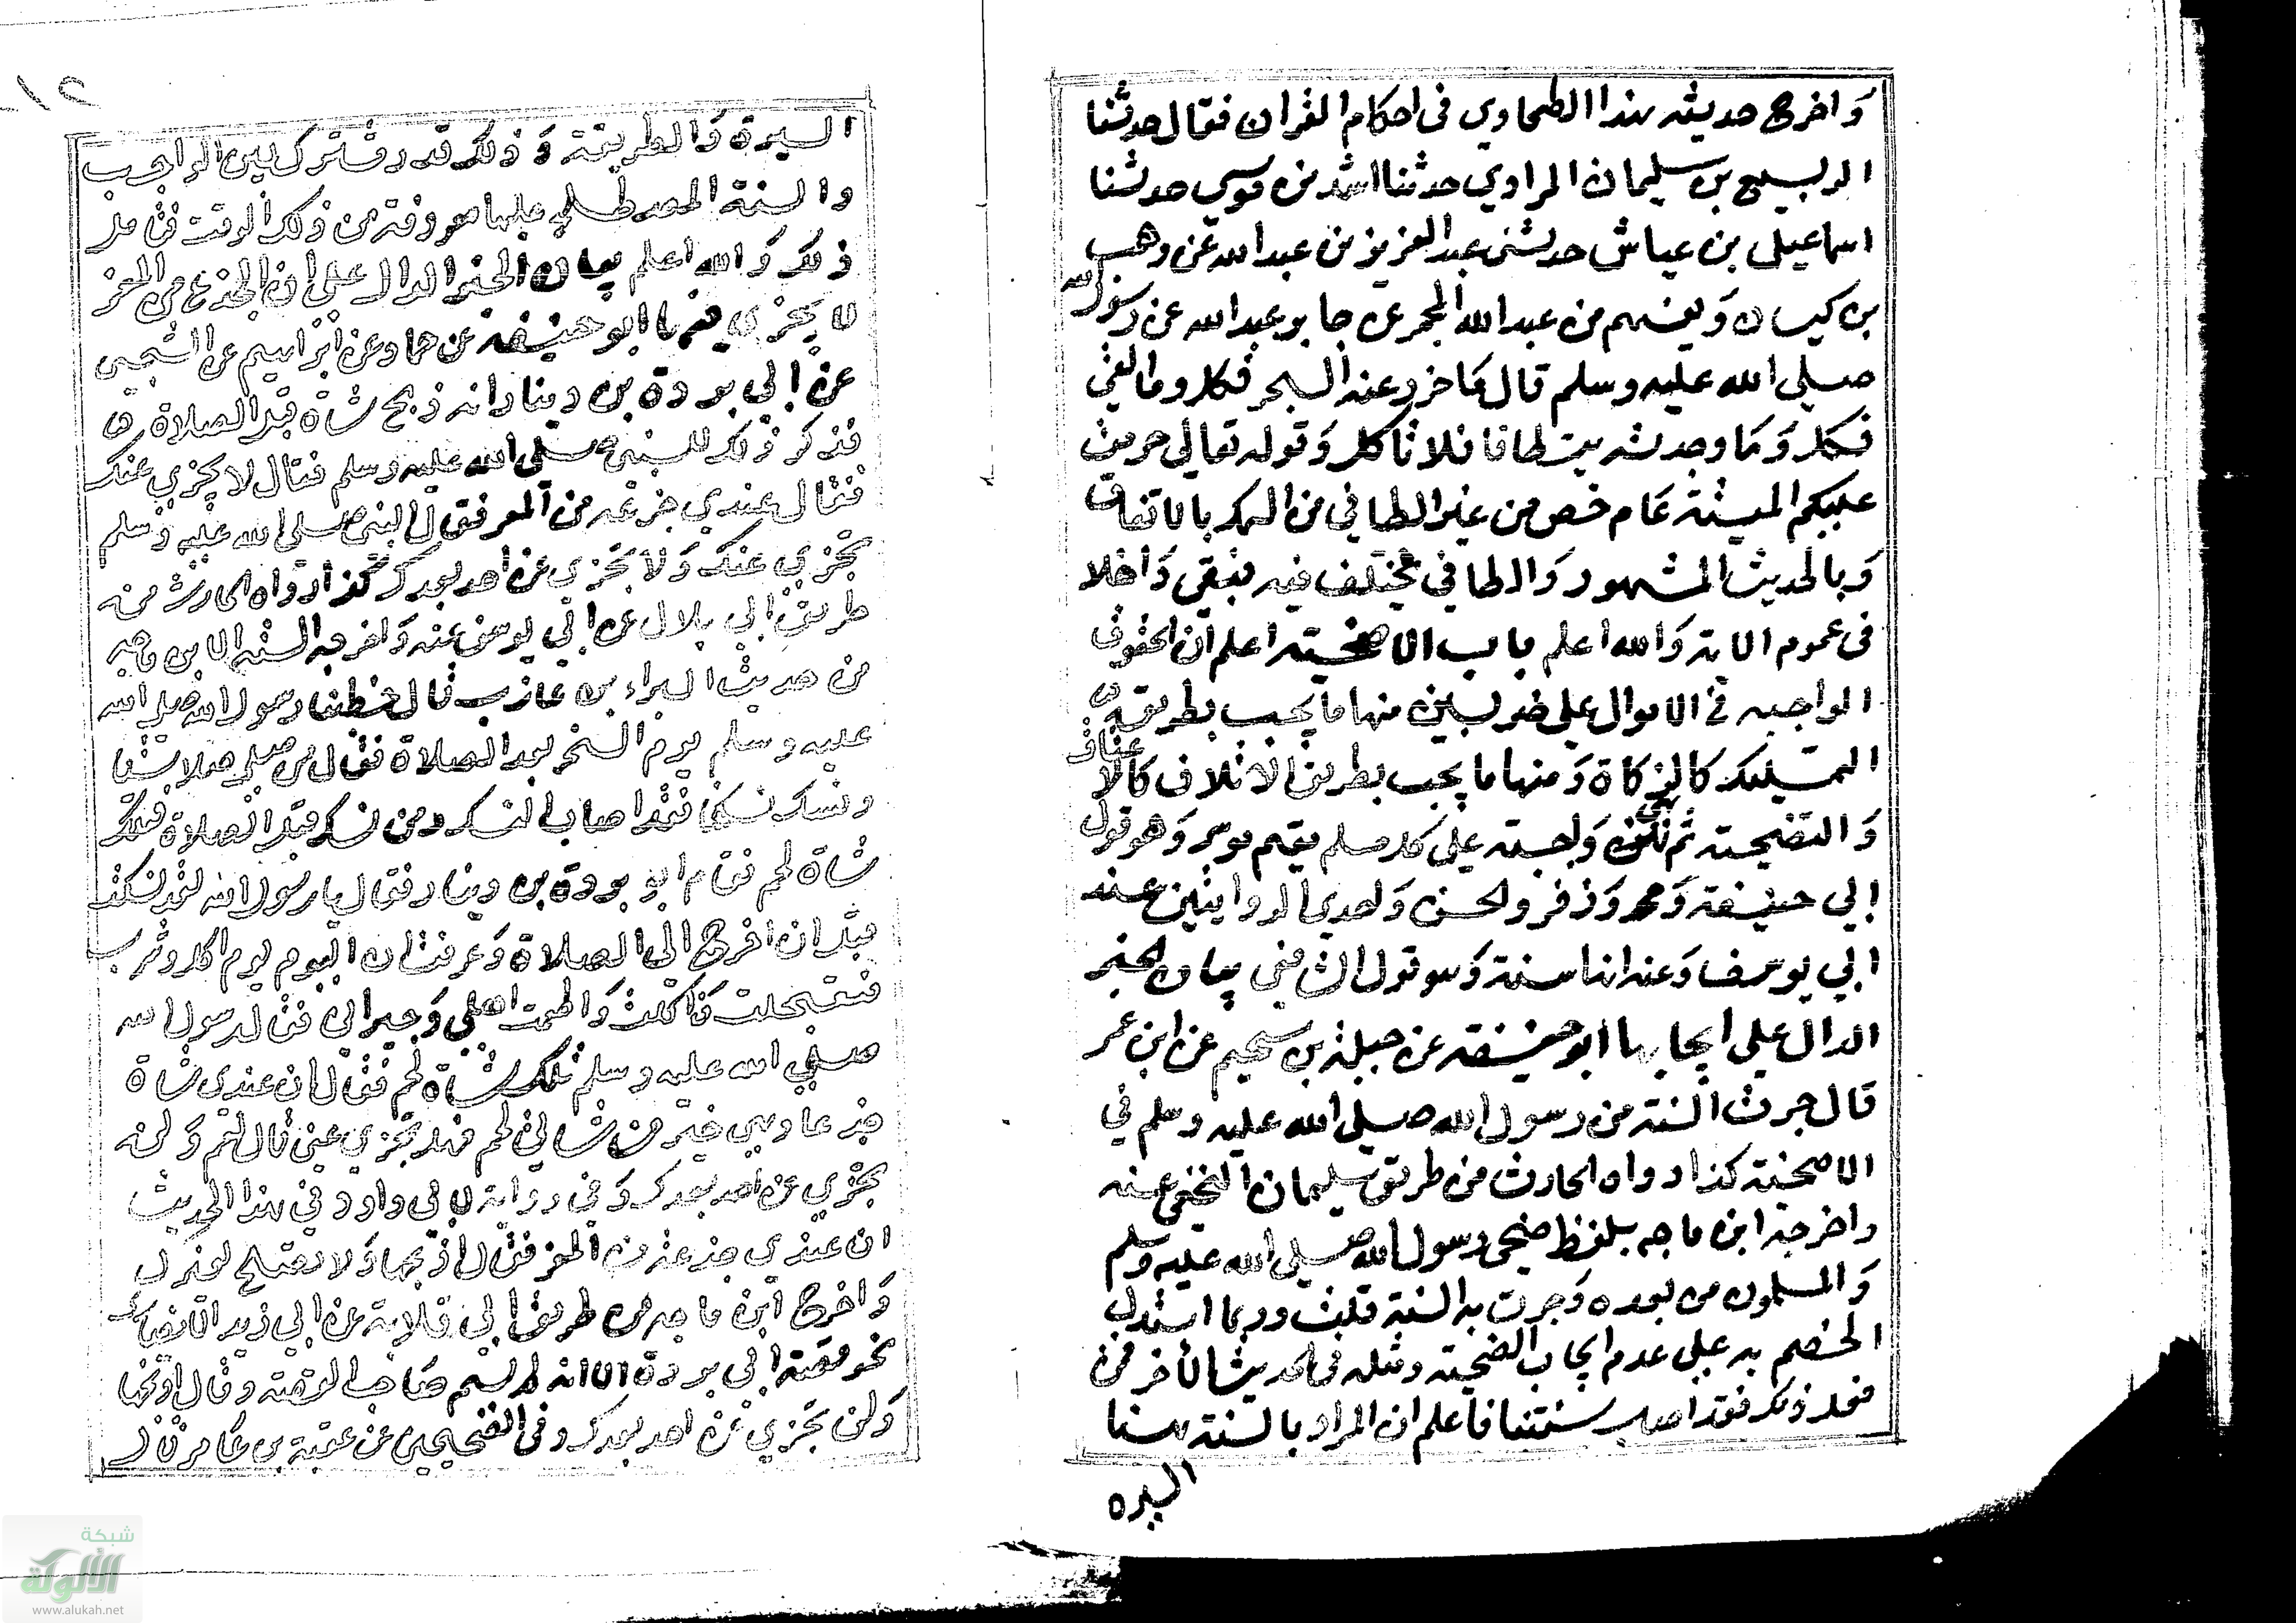 واخرج حديثه هذا الطحاوي في احكام القران فقال حدثنا
الربيع بن سليمان المرادي حدثنا اسد بن موسى حدثنا
اسماعيل بن عياش حدثني عبد العزيز بن عبد الله عن وهب
بن كيسان ونعيم بن عبد الله المجمر عن جابر بن عبد الله عن رسول الله
صلى الله عليه وسلم قال ما جزر عنه البحر فكل وما القى
فكل وما وجدته ميتا طافا فلا تاكل وقوله تعالى حرمت
عليكم الميتة عام خص من غير الطافي من السمك بالاتفاق
وبالحديث المشهور والطافي مختلف فيه فبقي داخلا
في عموم الاية والله اعلم باب الاضحية اعلم ان الحقوق
الواجبه في الاموال على ضربين منها ما يجب بطريق
التمليك كالزكاة ومنها ما يجب بطريق الاتلاف كالاعتاق
والتضحية ثم هي واجبة على كل مسلم مقيم موسر وهو قول
ابي حنيفة ومحمد وزفر والحسن واحدى الروايتين عند
ابي يوسف وعنه انها سنة وهو قول الشافعي بيان الخبر
الدال على ايجابها ابو حنيفة عن جبلة بن سحيم عن ابن عمر
قال جرت السنة من رسول الله صلى الله عليه وسلم في
الاضحية كذا رواه الحارث من طريق سليمان النخعي عنه
واخرجه ابن ماجه بلفظ ضحى رسول الله صلى الله عليه وسلم
والمسلمون من بعده وجرت به السنة قلت وربما استدل
الخصم به على عدم ايجاب الضحية ومثله في الحديث الاخر فمن
فعل ذلك فقد اصاب سنتنا فاعلم ان المراد بالسنة هنا
السيره
السيرة والطريقة وذلك قدر مشترك بين الواجب
والسنة المصطلح عليها معروفة من ذلك الوقت فتامل
ذلك والله اعلم بيان الخبر الدال على ان الجذع من المعز
لا يجزي فيها ابو حنيفة عن حماد عن ابراهيم عن الشعبي
عن ابي بردة بن دينار انه ذبح شاة قبل الصلاة
فذكر ذلك للنبي صلى الله عليه وسلم فقال لا يجزي عنك
فقال عندي جزعه من المعز فقال النبي صلى الله عليه وسلم
تجزي عنك ولا تجزي عن احد بعدك كذا رواه الحارث من
طريق ابي بلال عن ابي يوسف عنه واخرجه الستة الا ابن ماجه
من حديث البراء بن عازب قال خطبنا رسول الله صلى الله
عليه وسلم يوم النحر بعد الصلاة فقال من صلى صلاتنا
ونسك نسكنا فقد اصاب النسك ومن نسك قبل الصلاة فتلك
شاة لحم فقام ابو بردة بن دينار فقال يا رسول الله لقد نسكت
قبل ان اخرج الى الصلاة وعرفت ان اليوم يوم اكل وشرب
فتعجلت فاكلت واطعمت اهلي وجيراني فقال رسول الله
صلى الله عليه وسلم تلك شاة لحم فقال ان عندي شاة
جذعا وهي خير من شاتي لحم فهل تجزي عني قال نعم ولن
تجزي عن احد بعدك وفي رواية لابي داود في هذا الحديث
ان عندي جذعة من المعز فقال اذبحها ولا تصلح لغيرك
واخرج ابن ماجه من طريق ابي قلابة عن ابي زيد الانصاري
نحو قصة ابي بردة الا انه لم يسم صاحب القصة وقال اذبحها
ولن تجزي عن احد بعدك وفي الصحيحين عن عقبة بن عامر قال
شبكة
الألوكة
www.alukah.net